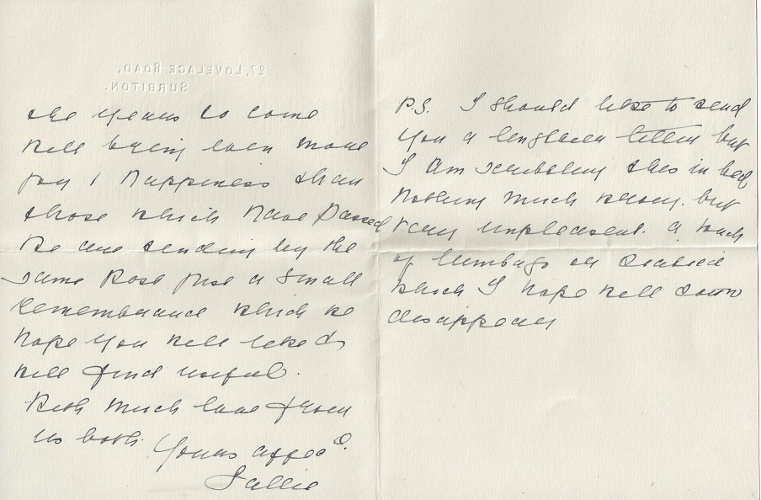 27, LOVELACE ROAD,
SURBITON.
the years to come
will bring even more
joy & happiness than
those which have passed
We are sending by the
same post just a small
remembrance which we
hope you will like &
will find useful.
With much love from
us both.
Yours affect.
Sallie
P.S. I should like to send
you a lengthier letter but
I am scribbling this in bed
nothing much wrong. but
very unpleasant. a touch
of lumbago or sciatica
which I hope will soon
disappear